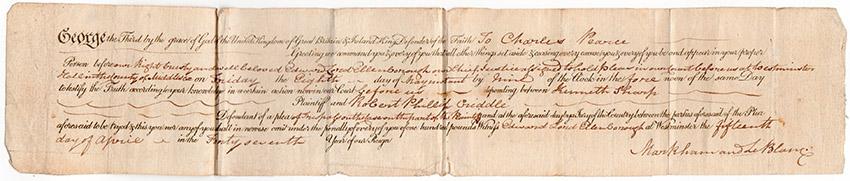 George the Third by the grace of God of the United Kingdom of Great Britain & Ireland King Defender of the Faith To Charles Pearce
Greeting we command you & every of you that all other things set aside & ceasing every excuse you & every of you be and appear in your proper
Person before our Right trusty and well beloved Edward Lord Ellenborough our Chief Justice assigned to hold pleas in our Court before us at Westminster
Hall in the County of Middlesex on Friday the Eighth day of May instant by Nine of the Clock in the fore noon of the same Day
to testify the Truth according to your knowledge in a certain action now in our Court before us depending between Kenneth Sharp
Plaintiff and Robert Phillip Criddle
Defendant of a plea of Trespass on the Case on the part of the Plaintiff and at the aforesaid day by a Jury of the Country between the parties aforesaid of the Plea
aforesaid to be tryed & this you nor any of you shall in no wise omit under the penalty of every of you of one hundred pounds Witness Edward Lord Ellenborough at Westminster the fifteenth
day of April in the Forty seventh Year of our Reign
Markham and Le Blanc